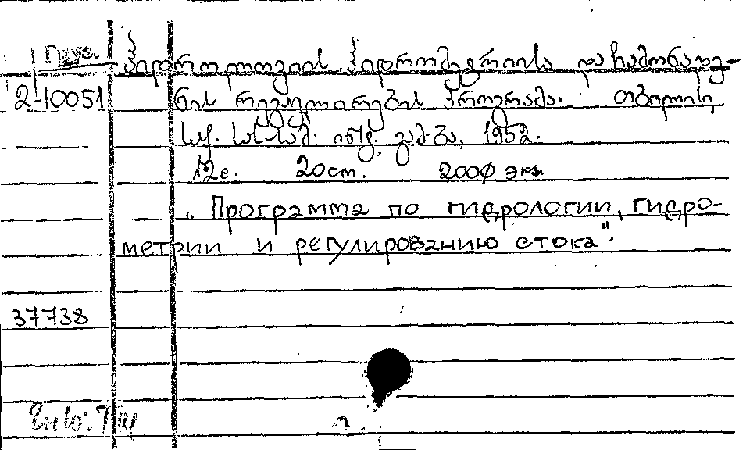 ჰიდროლოგიის ჰიდრომეტრიისა და ჩამონადე-
2-10051 ნის რეგულირების პროგრამა. თბილისი,
საქ. სას.-სამ. ინსტ. გამ-ბა, 1952.
12გ. 20სტ. 200 ეგზ.
"Программа по гидрологии, гидро-
метрии и регулированию стока".
37738